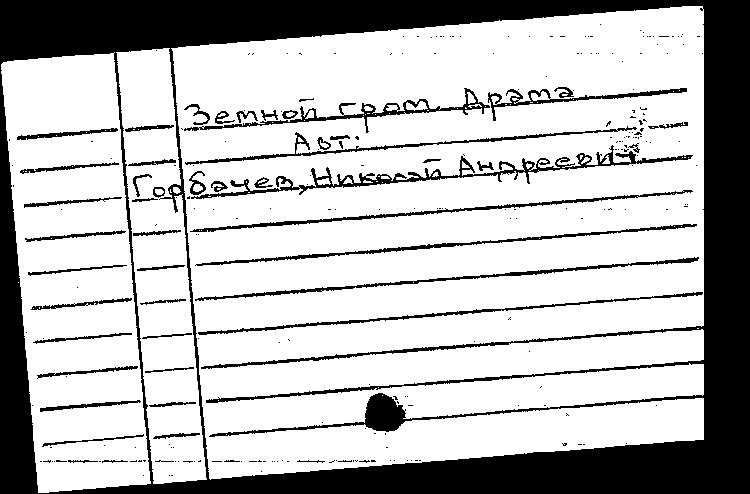 Земной гром. Драма.
Авт:
Горбачев, Николай Андреевич.